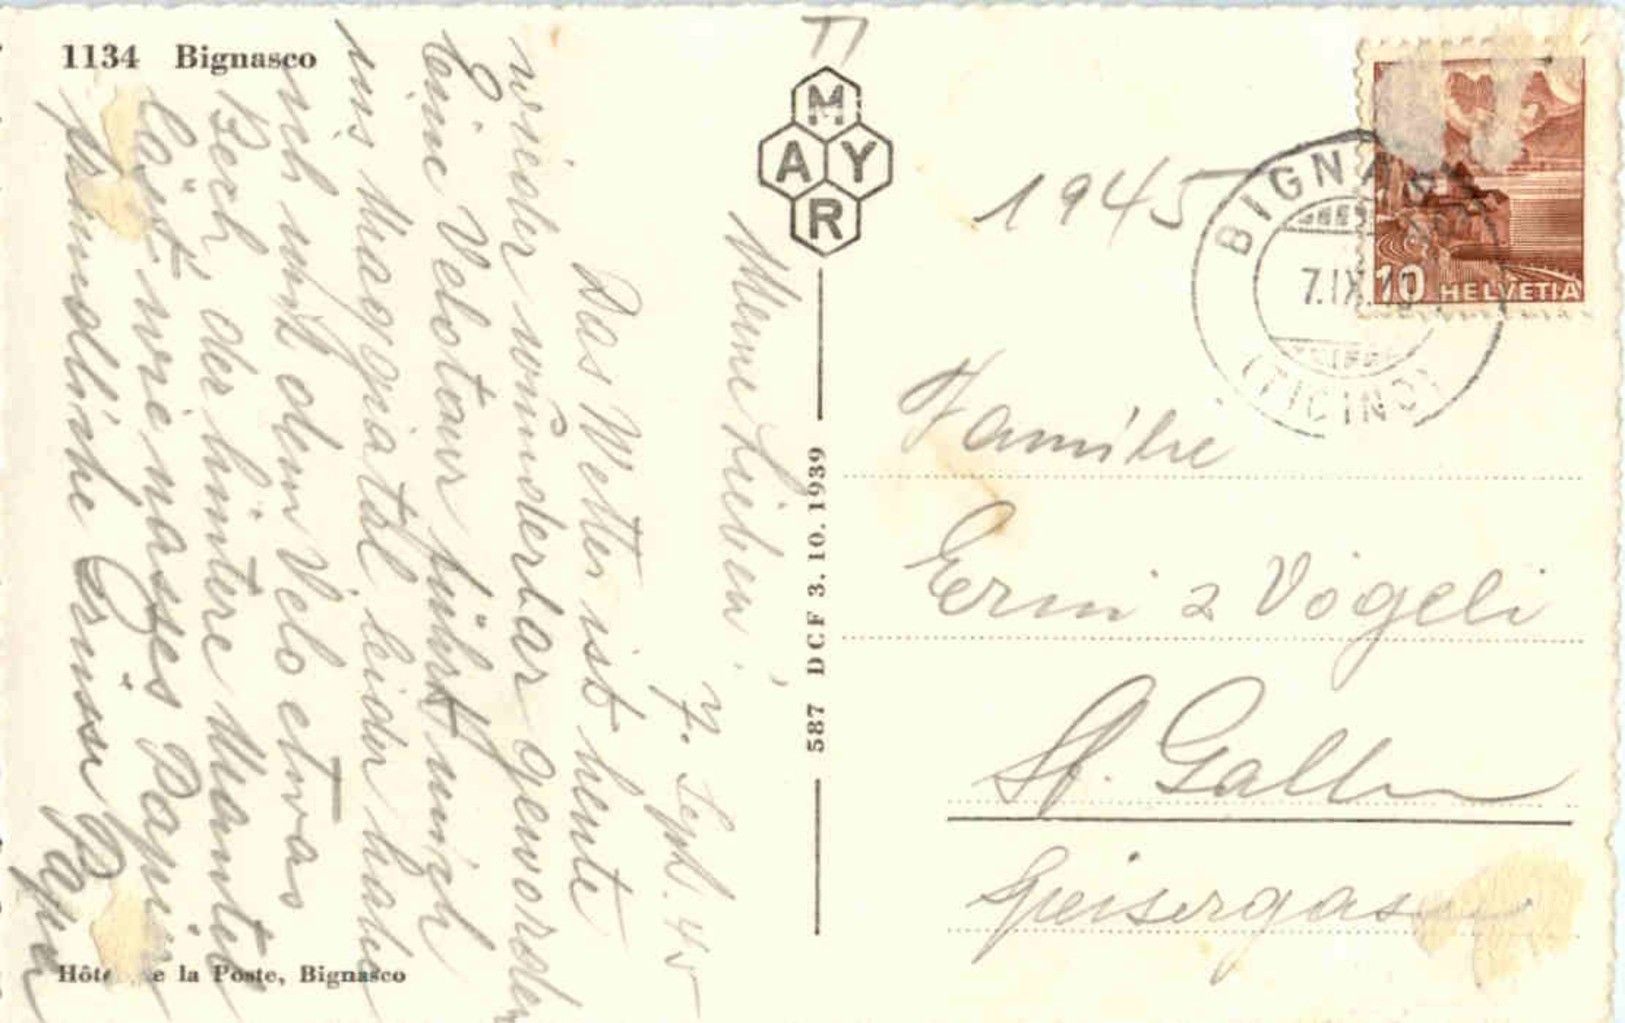 1134 Bignasco
7. Sept. 45
Meine Lieben,
Das Wetter ist heute
wieder wunderbar geworden
Eine Velotour führt mich
ins Maggiatal. Leider habe
ich mit dem Velo etwas
Pech, der hintere Mantel
löst wie nasses Papier
Hôtel de la Poste, Bignasco
M
A Y
R
587 DCF 3. 10. 1939
1945
BIGNASCO
7.IX.
(TICINO)
10 HELVETIA
Familie
Erni z Vögeli
St. Gallen
Speisergasse